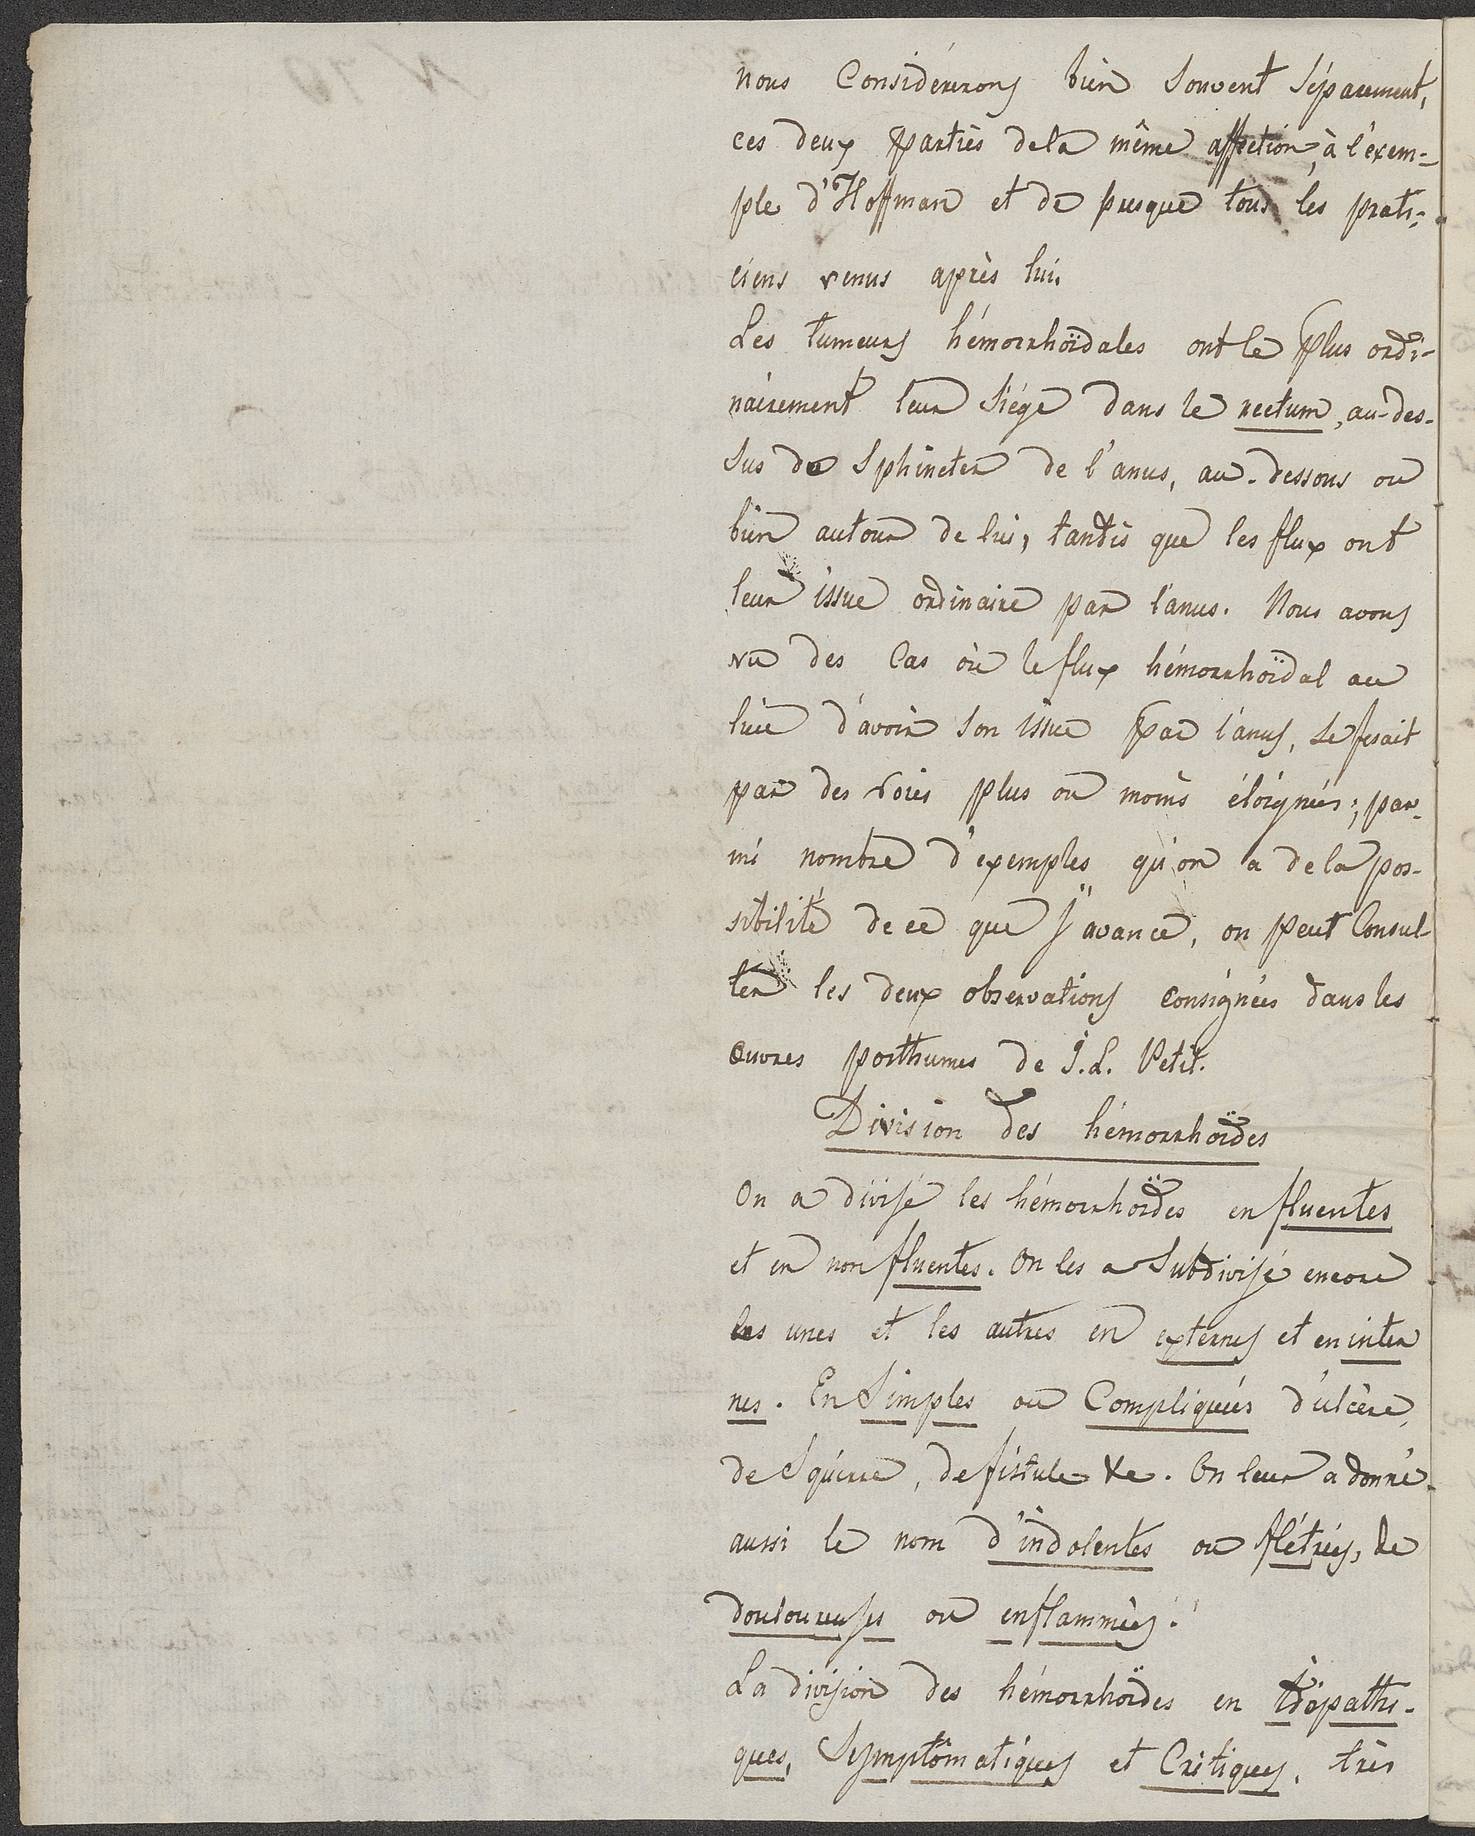 nous Considérerons bien Souvent Séparement,
ces deux parties dela même affection, à l'exem-
ple d'Hoffman et de presque tous les prati-
ciens venus après lui.
Les tumeurs hémorrhoïdales ont le plus ordi-
nairement leur Siége dans le rectum, au-des-
sus de Sphincter de l'anus, au-dessous ou
bien autour de lui, tandis que les flux ont
leur issue ordinaire par l'anus. Nous avons
vu des Cas où le flux hémorrhoïdal au
lieu d'avoir Son issue par l'anus, se fesait
par des voies plus ou moins éloignées; par-
mi nombre d'exemples qu'on a de la pos-
sibilité de ce que j'avance, on peut Consul-
ter les deux observations consignées dans les
œuvres posthumes de J. L. Petit.
Division des hémorrhoïdes
On a divisé les hémorrhoïdes en fluentes
et en non fluentes. On les a Subdivisé encore
les unes et les autres en externes et en inter
nes. En Simples ou Compliquées d'ulcère,
de Squirre, de fistule &c. On leur a donné
aussi le nom d'indolentes ou flétries, de
douloureuses ou enflammées.
La division des hémorrhoïdes en Idiopathi-
ques, Symptômatiques et Critiques, très